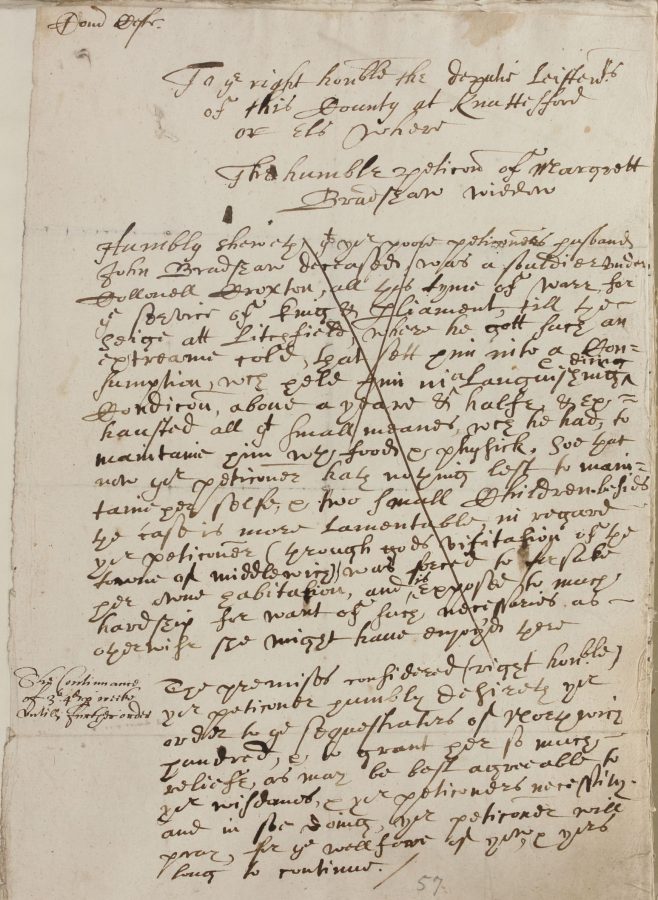 To ye right hon:ble the deputie Leiften:ts
of this County at Knattesford
or Els where
The humble peticon of Margrett
Bradshaw widdow
Humbly sheweth yt yor poore peticoners husband
John Bradshaw deceased, was a souldier under
Collonell Croxton, all this tyme of warr for
ye service of King & Parliament, till the
seige att Litchfield, where he gott such an
extreame cold, that sett him into a Con=
sumption, wch held him in a Languishing & dieing
Condicon, above a yeare & halfe, & Ex=
hausted all yt small meanes, wch he had, to
maintaine him wth food & physick. Soe that
now yor peticoner hath nothing left to main=
taine her selfe, & two small Children besides
the case is more Lamentable, in regard
yor peticoner (through gods visitation of the
towne of middlewich) was forced to forsake
her owne habitation, and is Exposed to much
hardship for want of such necessaries as
otherwise she might have enjoyed there
The premises considered (right hon:ble)
yor peticoner humbly desireth yor
order to ye sequestrators of Northwich
hundred, & to grant her so much
releife, as may be best agreeable to
yor wisdomes, & yor peticoners necessity.
and in soe doing, yor peticoner will
pray, for ye wellfare of you, & yors
long to continue./
Continuance
of
untill further order
57.